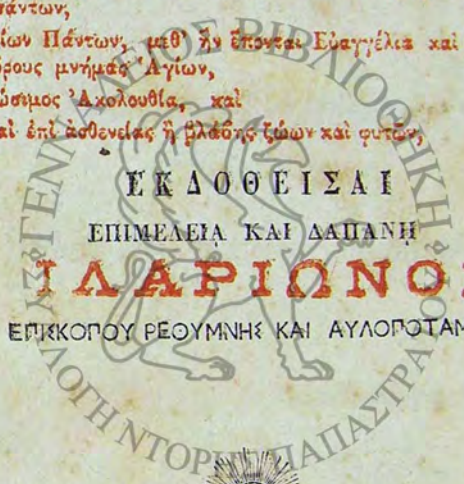 πάντων,
ίων Πάντων, μεθ' ἣν ἕπονται Εὐαγγέλια καὶ
όρους μνήμας Ἁγίων,
ώσιμος Ἀκολουθία, καὶ
αὶ ἐπὶ ἀσθενείας ἢ βλάβης ζώων καὶ φυτῶν,
ΕΚΔΟΘΕΙΣΑΙ
ΕΠΙΜΕΛΕΙᾼ ΚΑΙ ΔΑΠΑΝΗ
ΙΛΑΡΙΩΝΟΣ
ΕΠΙΣΚΟΠΟΥ ΡΕΘΥΜΝΗΣ ΚΑΙ ΑΥΛΟΠΟΤΑΜ
ΓΕΝΝΑΔΕΙΟΣ ΒΙΒΛΙΟΘΗΚΗ
ΛΟΓΗ ΝΤΟΡΗ ΠΑΠΑΣΤΡΑΤΟΥ